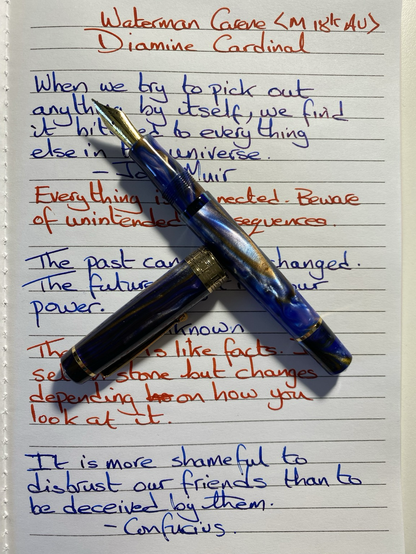 Waterman Carene <M 18k AU>
Diamine Cardinal
When we try to pick out
anything by itself, we find
it hit ed to everything
else in universe.
- Jo Muir
Everything is nected. Beware
of unintended sequences.
The past can changed.
The future our
power.
known
Th is like facts.
set stone but changes
depending on how you
look at it.
It is more shameful to
distrust our friends than to
be deceived by them.
- Confucius.